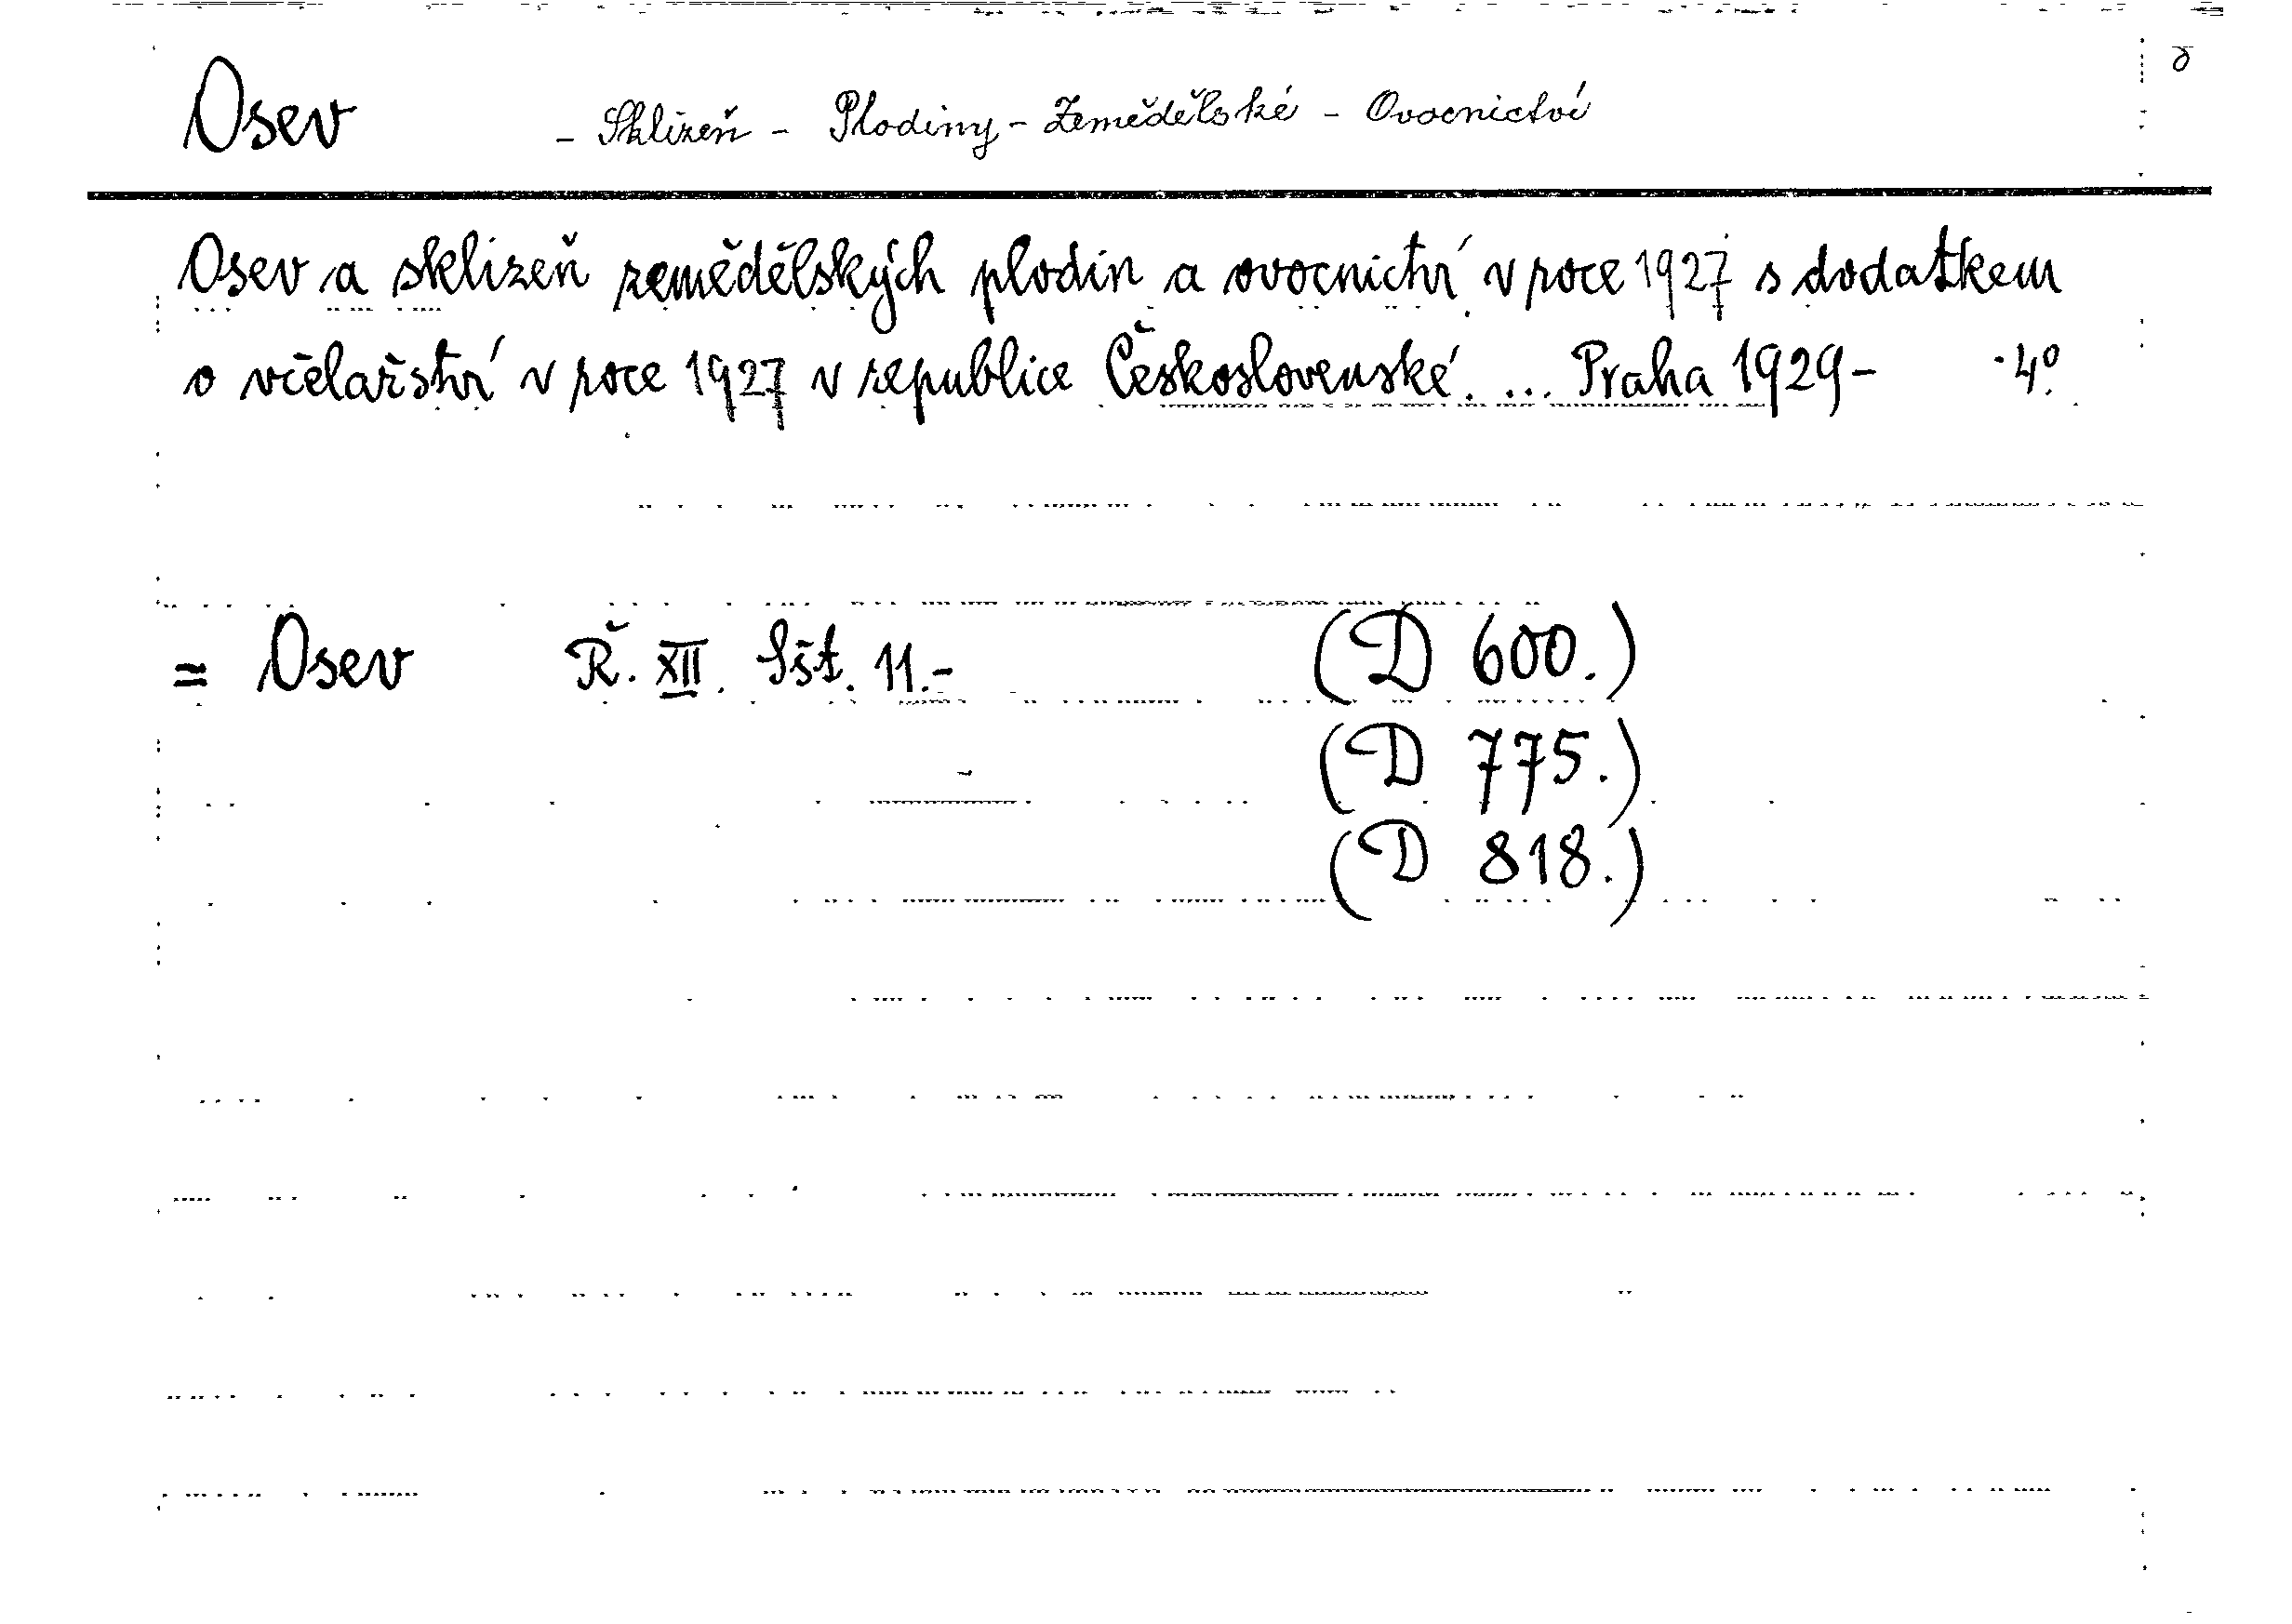 Osev - Sklizeň - Plodiny - Zemědělské - Ovocnictví
Osev a sklizeň zemědělských plodin a ovocnictví v roce 1927 s dodatkem
o včelařství v roce 1927 v republice Československé. ... Praha 1929- 4°.
= Osev Ř. XII. Sšt. 11.- (D 600.)
(D 775.)
(D 818.)